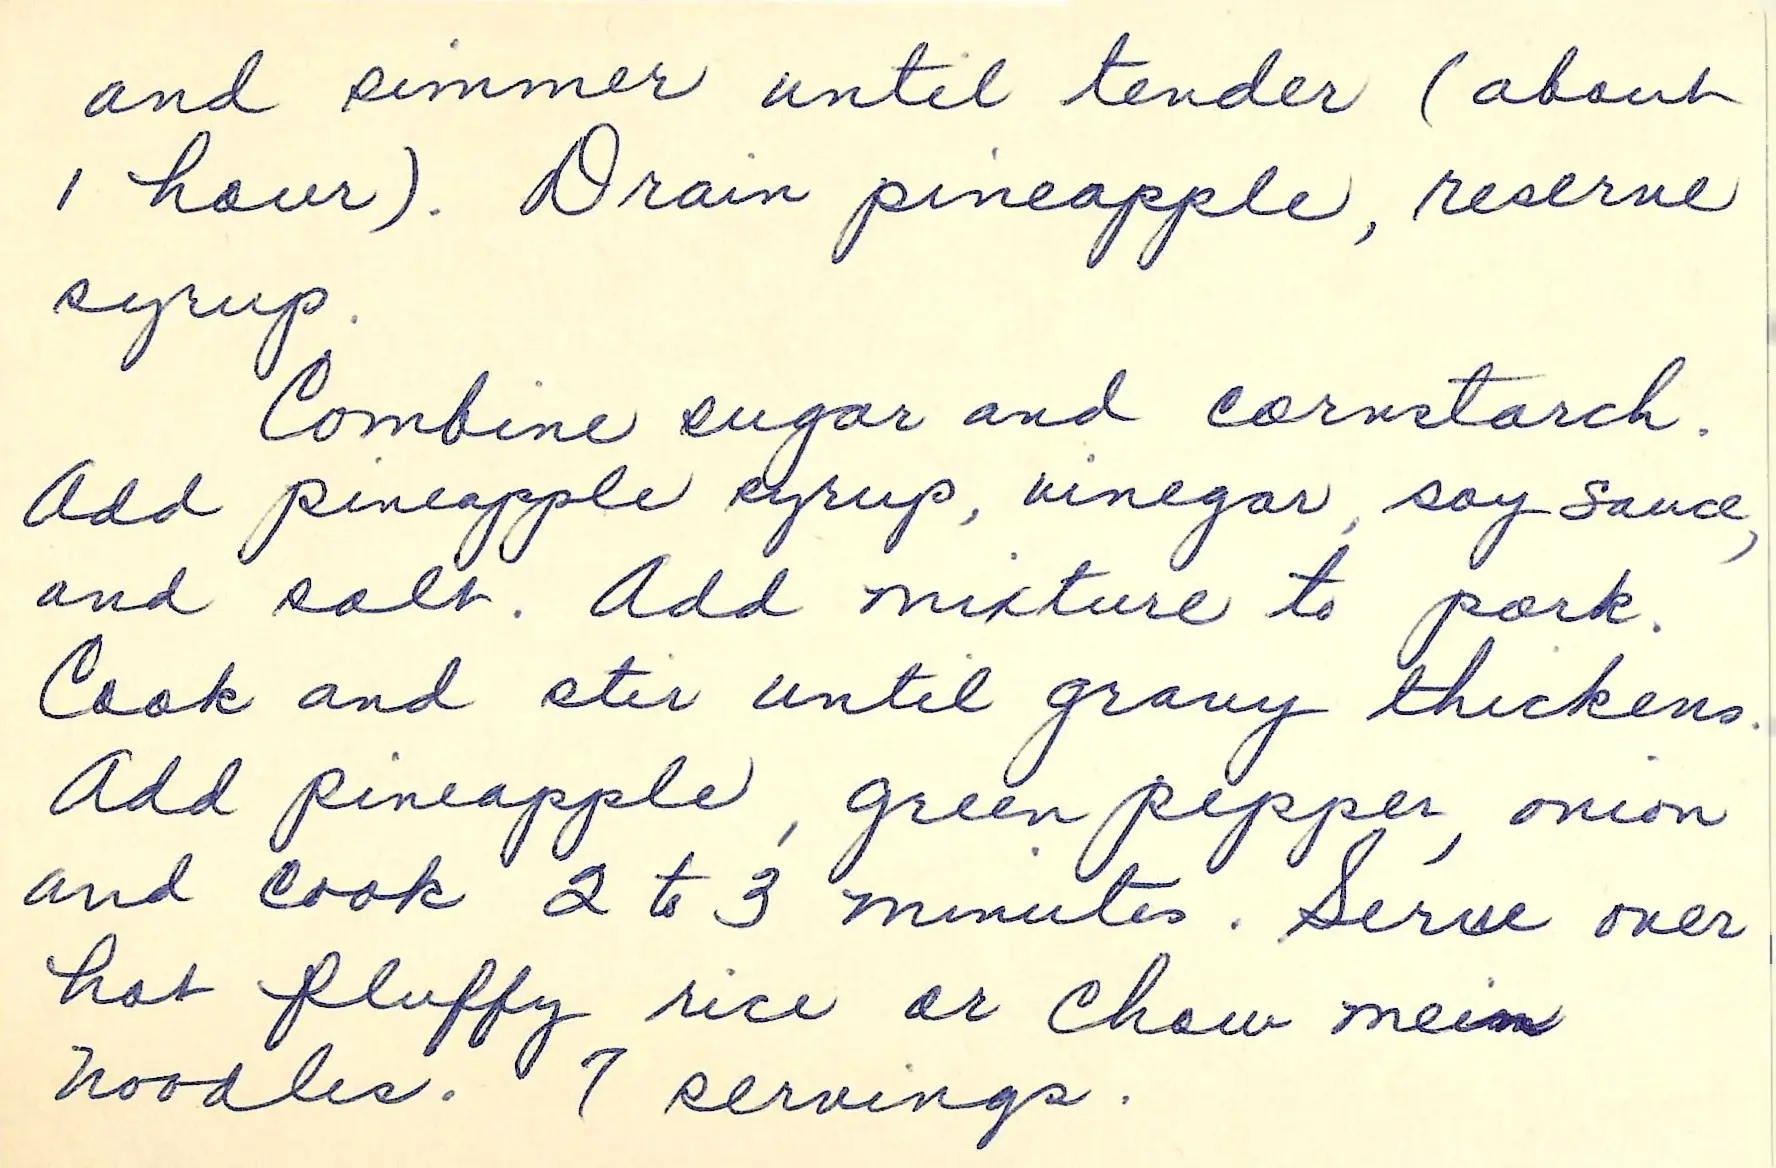 and simmer until tender (about
1 hour). Drain pineapple, reserve
syrup.
Combine sugar and cornstarch.
Add pineapple syrup, vinegar, soy sauce,
and salt. Add mixture to pork.
Cook and stir until gravy thickens.
Add pineapple, green pepper, onion
and cook 2 to 3 minutes. Serve over
hot fluffy rice or Chow mein
noodles. 7 servings.